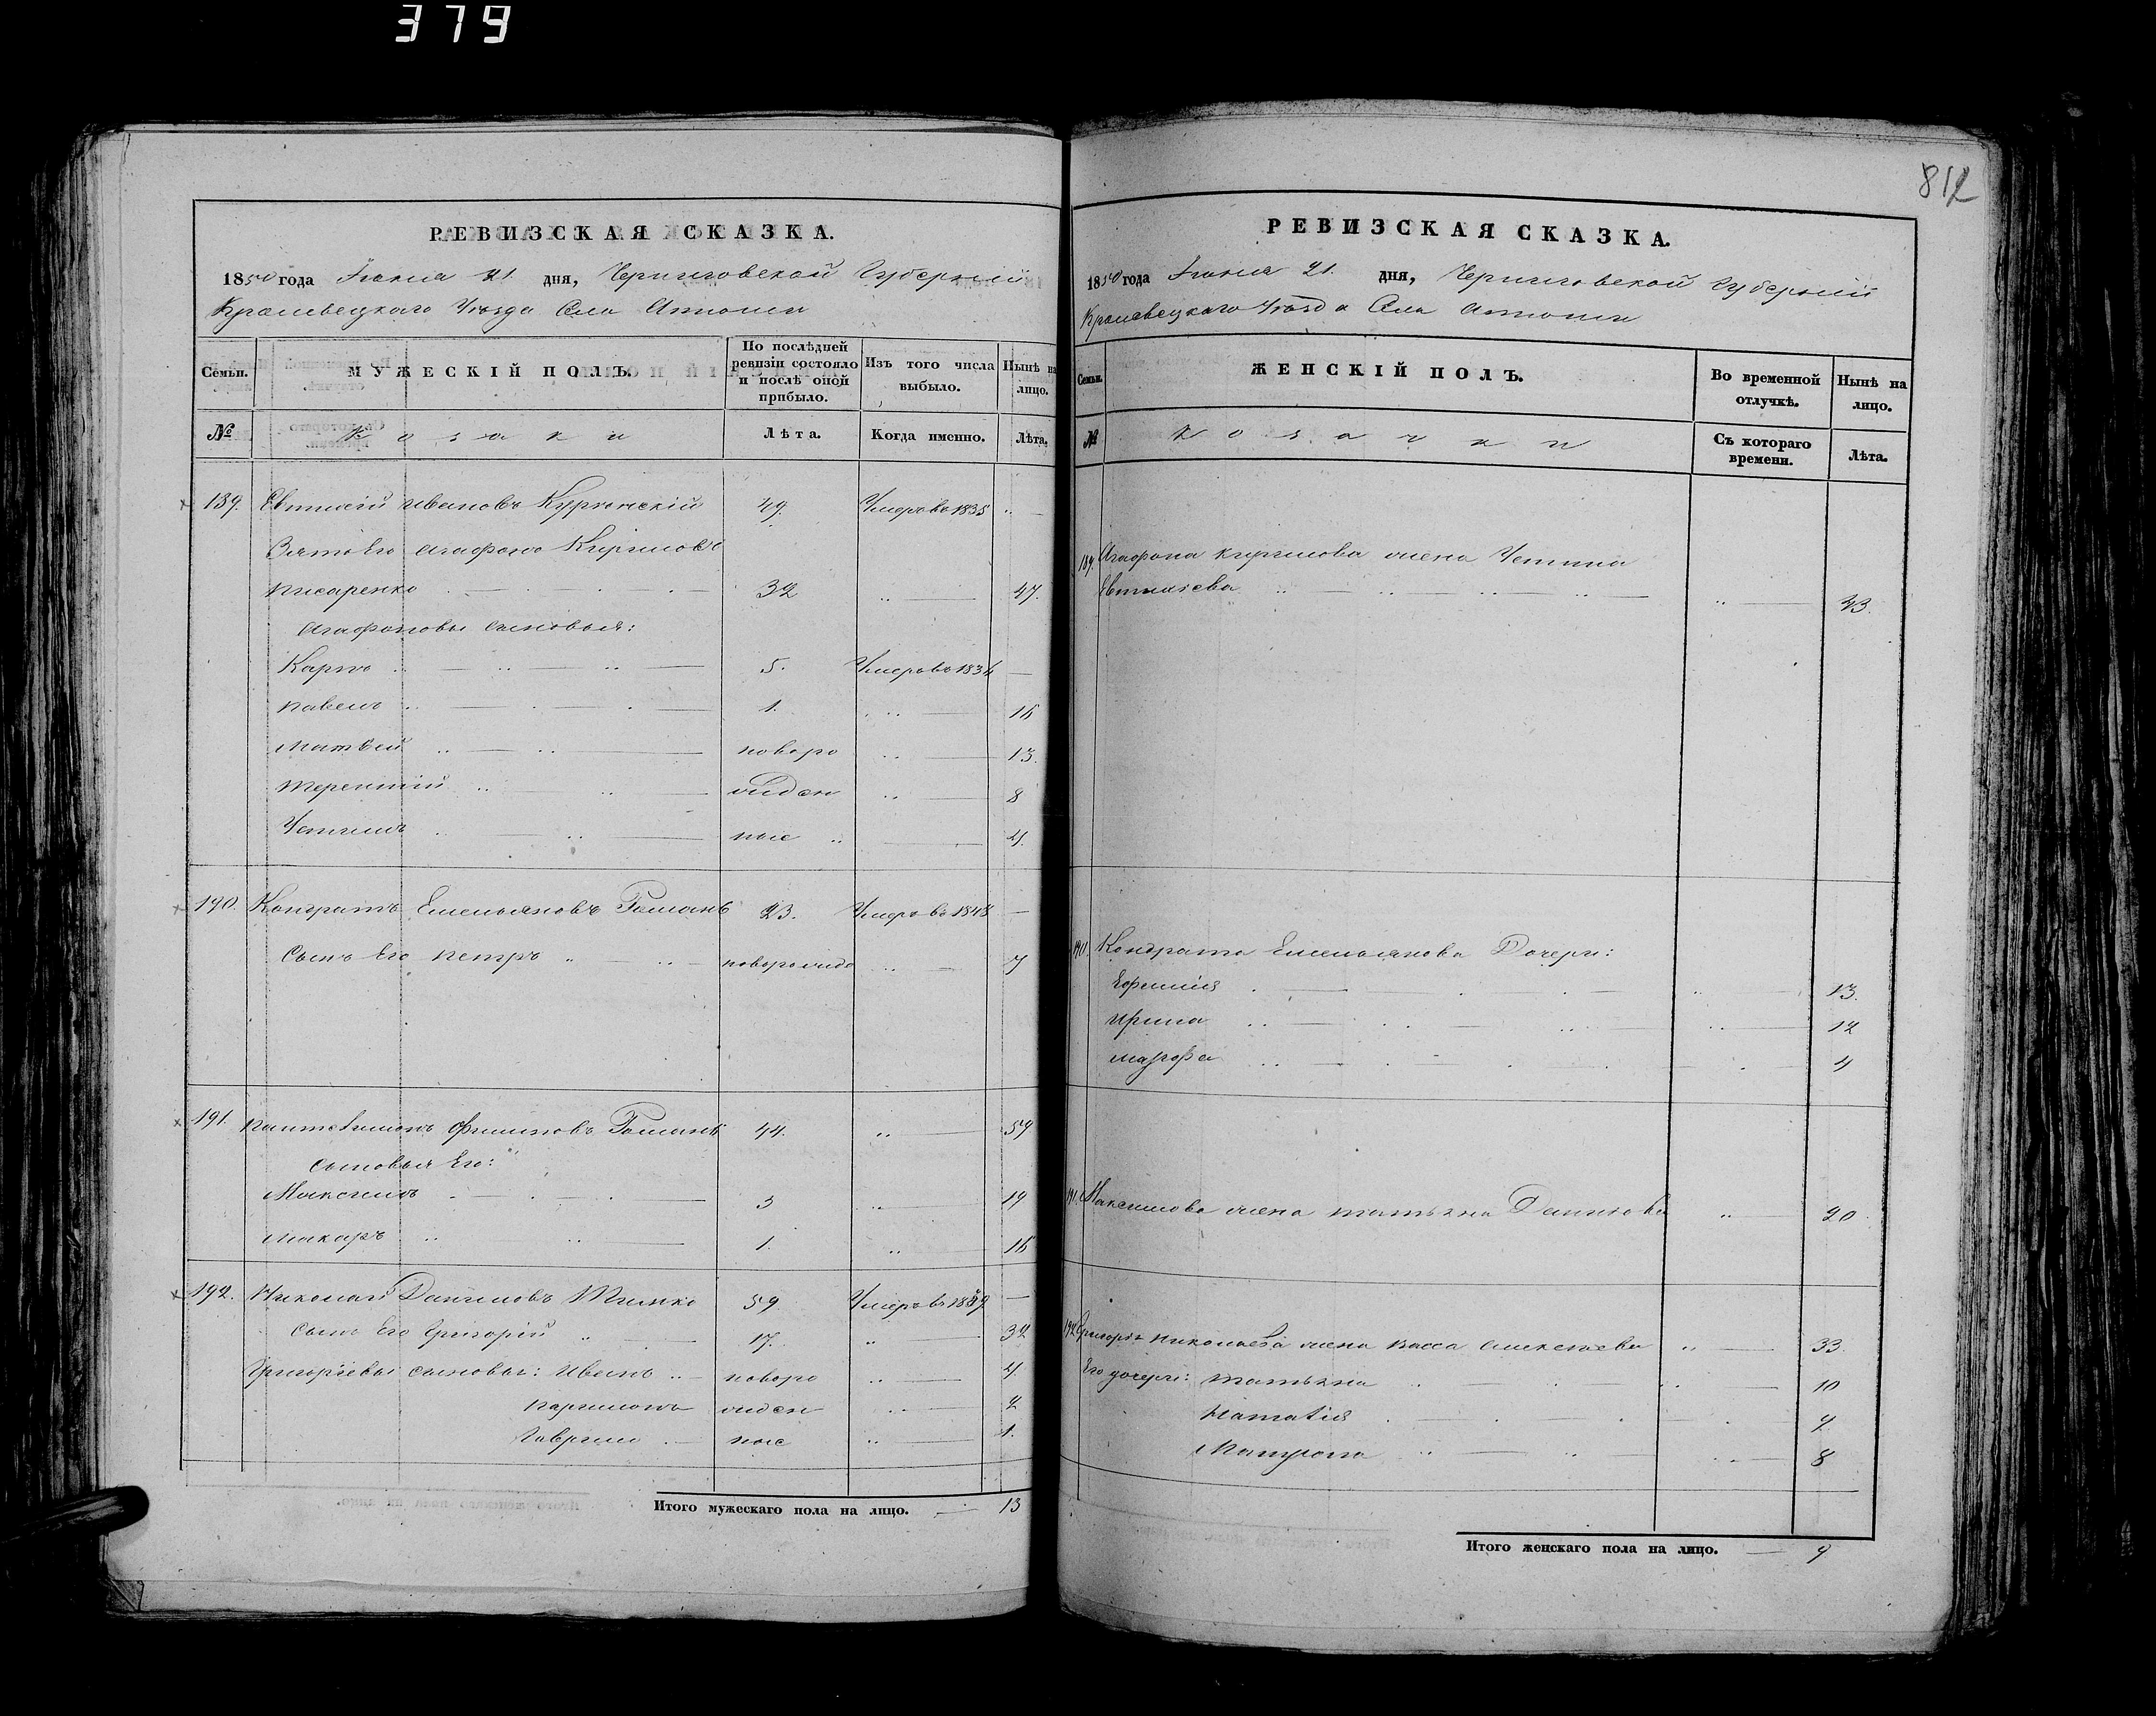 379
812
РЕВИЗСКАЯ СКАЗКА.
1850 года Іюния 21. дня, Черниговской Губерніи
Кролевецкаго Уѣзда Села
Семьи.
МУЖЕСКІЙ ПОЛЪ.
По послѣдней ревизіи состояло и послѣ оной прибыло.
Изъ того числа выбыло.
Нынѣ на лицо.
№
Козаки
Лѣта.
Когда именно.
Лѣта.
139. Евтихій Ивановъ 49. Умеръ въ 1835
Зять Его Агафонъ Кириловъ
Писаренко 32 47.
Агафоновы сыновья:
Карпъ 5. Умеръ въ 1834
Павелъ 1. 16
Матвей новоро 13.
Терентій жден 8
Устимъ ные 4.
140. Кондратъ Емельяновъ 23. Умеръ въ 1848
Сынъ Его Петръ новорожде 7
141. Пантелимонъ Филиповъ 44. 59
Сыновья Его:
Максимъ 3 19
Макаръ 1. 16
142. Николай Даниловъ 59 Умеръ въ
Сынъ Его Григорій 17. 32
Григоріевы сыновья: Иванъ новоро 4.
Парпимонъ жден 2
Гаврило ные 1.
Итого мужескаго пола на лицо. 13
РЕВИЗСКАЯ СКАЗКА.
1850 года Іюния 21. дня, Черниговской Губерніи
Кролевецкаго Уѣзда Села
Семьи.
ЖЕНСКІЙ ПОЛЪ.
Во временной отлучкѣ.
Нынѣ на лицо.
№
Козачки
Съ котораго времени.
Лѣта.
139. Агафона Кирилова жена Устина
Евтихіева 43.
140. Кондрата Емельянова Дочери:
Ефимія 13.
Ирина 12
Марфа 4
141. Максимова жена Татьяна Данилова 20
142 Григорія Николаева жена Васса Алексеева 33
Его дочери: Татьяна 10
Наталія
Матрона 8
Итого женскаго пола на лицо. 9